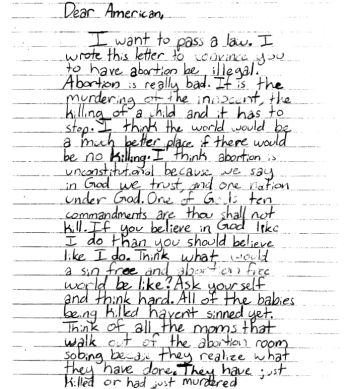 Dear American,
I want to pass a law. I
wrote this letter to convince you
to have abortion be illegal.
Abortion is really bad. It is the
murdering of the innocent, the
killing of a child and it has to
stop. I think the world would be
a much better place if there would
be no killing. I think abortion is
unconstitutional because we say
in God we trust, and one nation
under God. One of G ds ten
commandments are thou shall not
kill. If you believe in God like
I do than you should believe
like I do. Think what would
a sin free and abortion free
world be like? Ask yourself
and think hard. All of the babies
being killed havent sinned yet.
Think of all the moms that
walk out of the abortion room
sobing because they realize what
they have done. They have just
killed or had just murdered